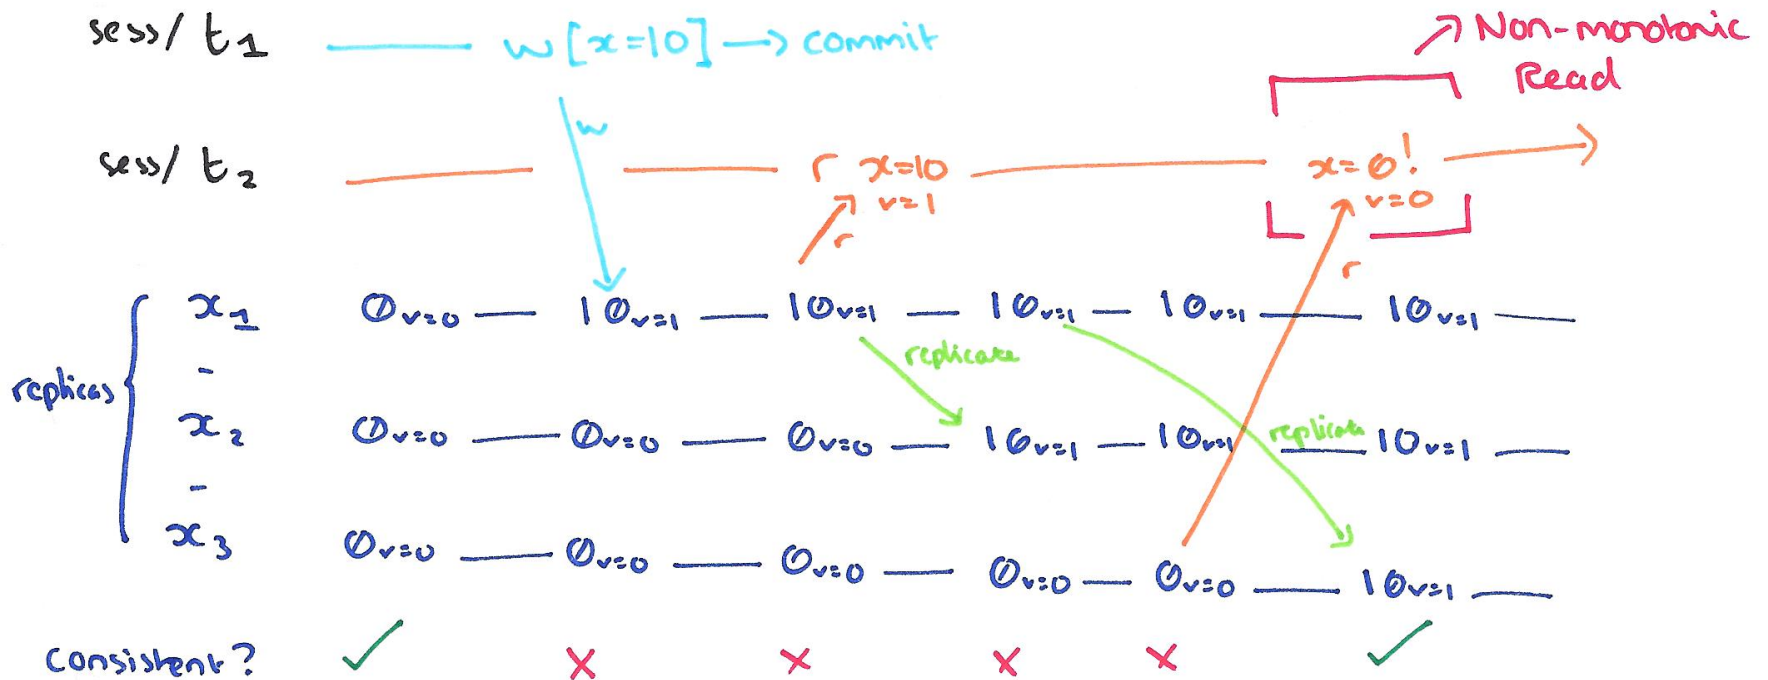 sess/ t1 w[x=10] → commit
Non-monotonic
Read
w
sess/ t2 r x=10 x=0!
v=1 v=0
r
r
x1 0v=0 10v=1 10v=1 10v=1 10v=1 10v=1
replicate
replicas
-
x2 0v=0 0v=0 0v=0 10v=1 10v=1 10v=1
replicate
-
x3 0v=0 0v=0 0v=0 0v=0 0v=0 10v=1
consistent? ✓ x x x x ✓